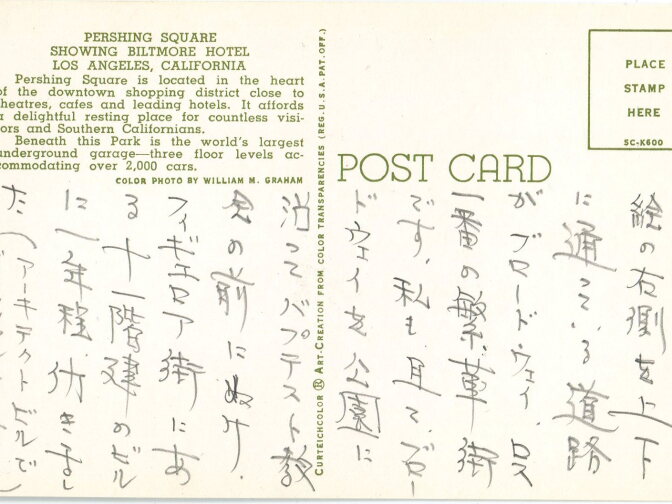 PERSHING SQUARE
SHOWING BILTMORE HOTEL
LOS ANGELES, CALIFORNIA
Pershing Square is located in the heart
of the downtown shopping district close to
theatres, cafes and leading hotels. It affords
a delightful resting place for countless visi-
tors and Southern Californians.
Beneath this Park is the world's largest
underground garage—three floor levels ac-
commodating over 2,000 cars.
COLOR PHOTO BY WILLIAM M. GRAHAM
CURTEICHCOLOR ® ART-CREATION FROM COLOR TRANSPARENCIES (REG. U.S.A. PAT. OFF.)
POST CARD
PLACE
STAMP
HERE
5C-K600
絵の右側を上下
に通っている道路
がブロードウェイ、ロス
一番の繁華街
です、私も且て、ブロー
ドウェイを公園に
沿ってバプテスト教
会の前にぬけ、
フィギュロア街にあ
る十一階建のビル
に一年程、仂きまし
た(アーキテクトビルで